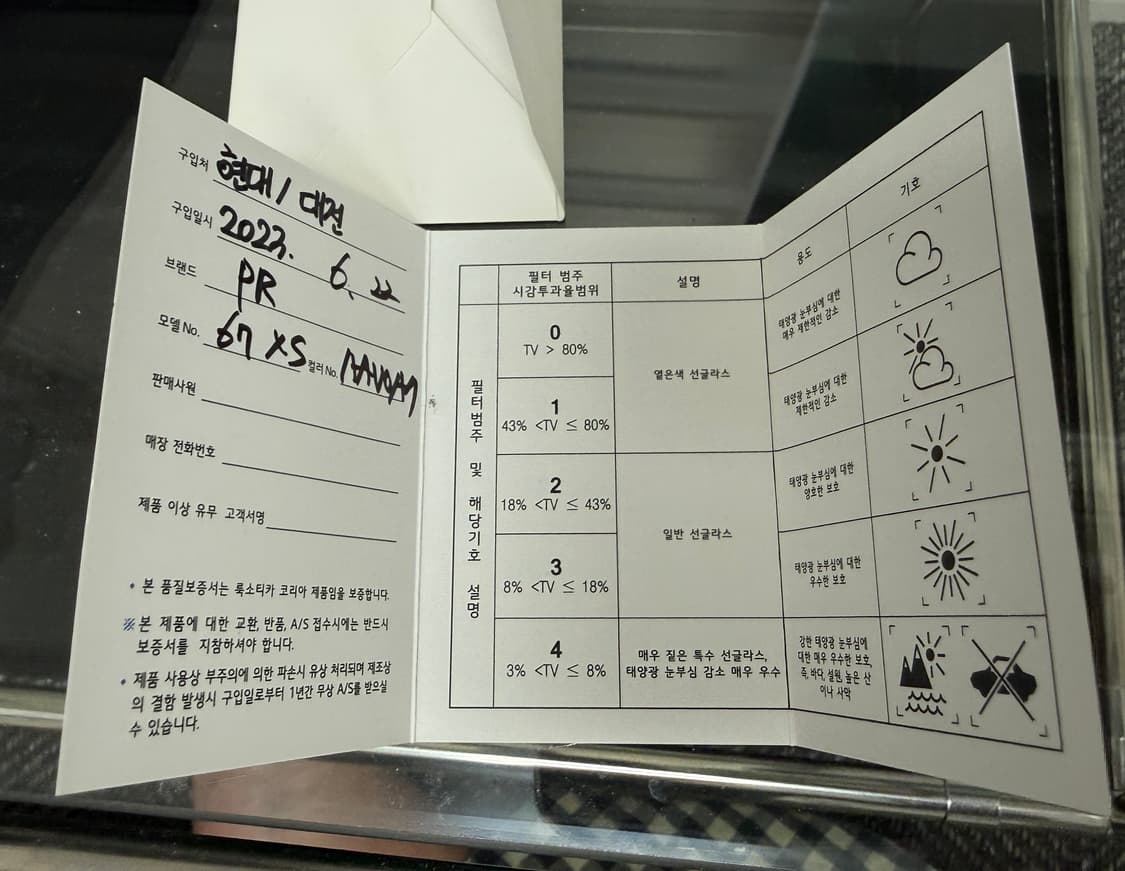 구입처 현대 / 대전
구입일시 2023. 6. 22
브랜드 PR
모델 No. 67 XS 컬러 No.
판매사원
매장 전화번호
제품 이상 유무 고객서명
• 본 품질보증서는 룩소티카 코리아 제품임을 보증합니다.
※ 본 제품에 대한 교환, 반품, A/S 접수시에는 반드시
보증서를 지참하셔야 합니다.
• 제품 사용상 부주의에 의한 파손시 유상 처리되며 제조상
의 결함 발생시 구입일로부터 1년간 무상 A/S를 받으실
수 있습니다.
필터범주 및 해당기호 설명
필터 범주
시감투과율범위
설명
용도
기호
0
TV > 80%
옅은색 선글라스
태양광 눈부심에 대한
매우 제한적인 감소
1
43% <TV ≤ 80%
태양광 눈부심에 대한
제한적인 감소
2
18% <TV ≤ 43%
일반 선글라스
태양광 눈부심에 대한
양호한 보호
3
8% <TV ≤ 18%
태양광 눈부심에 대한
우수한 보호
4
3% <TV ≤ 8%
매우 짙은 특수 선글라스,
태양광 눈부심 감소 매우 우수
강한 태양광 눈부심에
대한 매우 우수한 보호,
즉, 바다, 설원, 높은 산
이나 사막